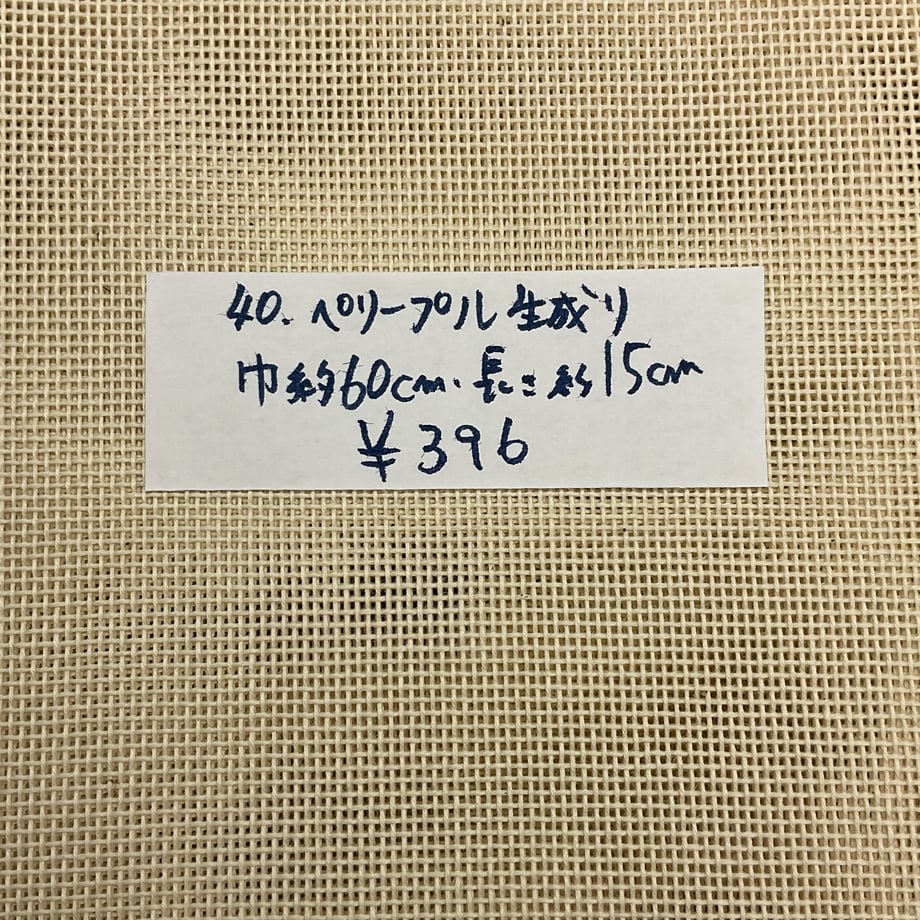 40. ペリープル 生成り
巾 約60cm、長さ 約15cm
¥396